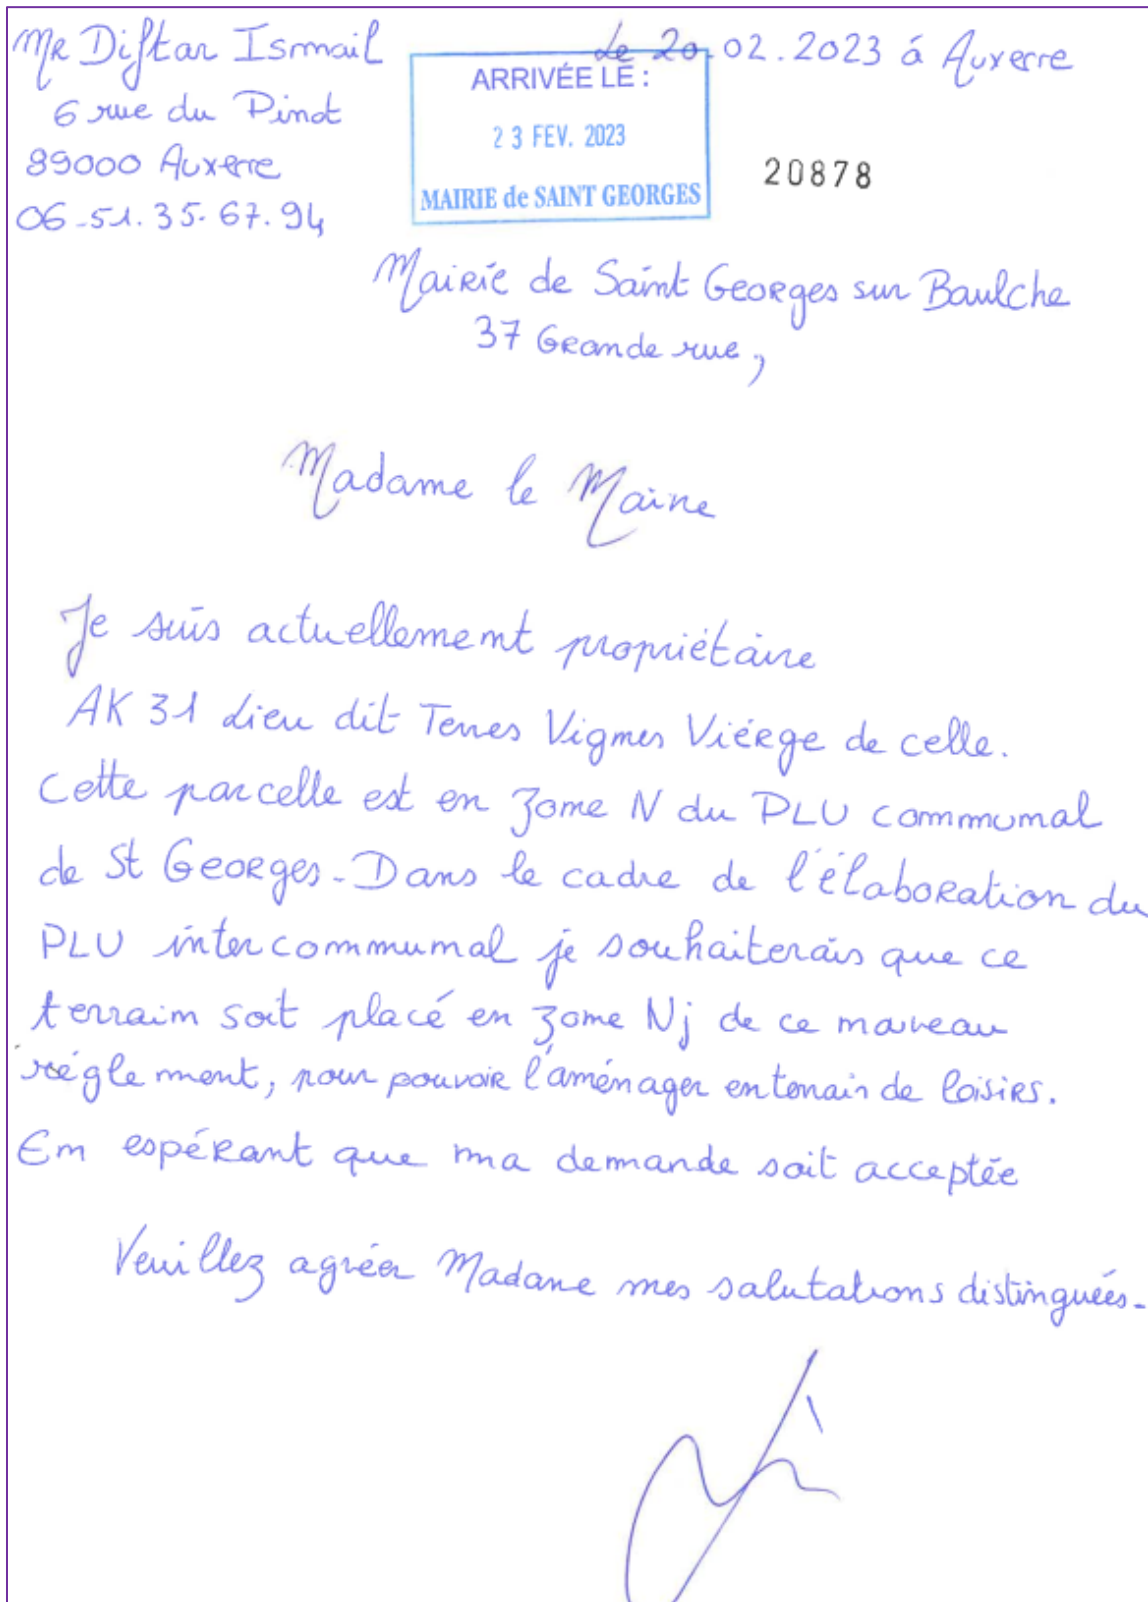 Mr Diftar Ismail
Le 20.02.2023 à Auxerre
6 rue du Pinot
89000 Auxerre
06.51.35.67.94
ARRIVÉE LE :
23 FEV. 2023
MAIRIE de SAINT GEORGES
20878
Mairie de Saint Georges sur Baulche
37 Grande rue,
Madame le Maire
Je suis actuellement propriétaire
AK 31 Lieu dit Terres Vignes Viérge de celle.
Cette parcelle est en zone N du PLU communal
de St Georges. Dans le cadre de l'élaboration du
PLU intercommunal je souhaiterais que ce
terrain soit placé en zone Nj de ce nouveau
réglement, pour pouvoir l'aménager en terrain de loisirs.
En espérant que ma demande soit acceptée
Veuillez agréer Madame mes salutations distinguées.